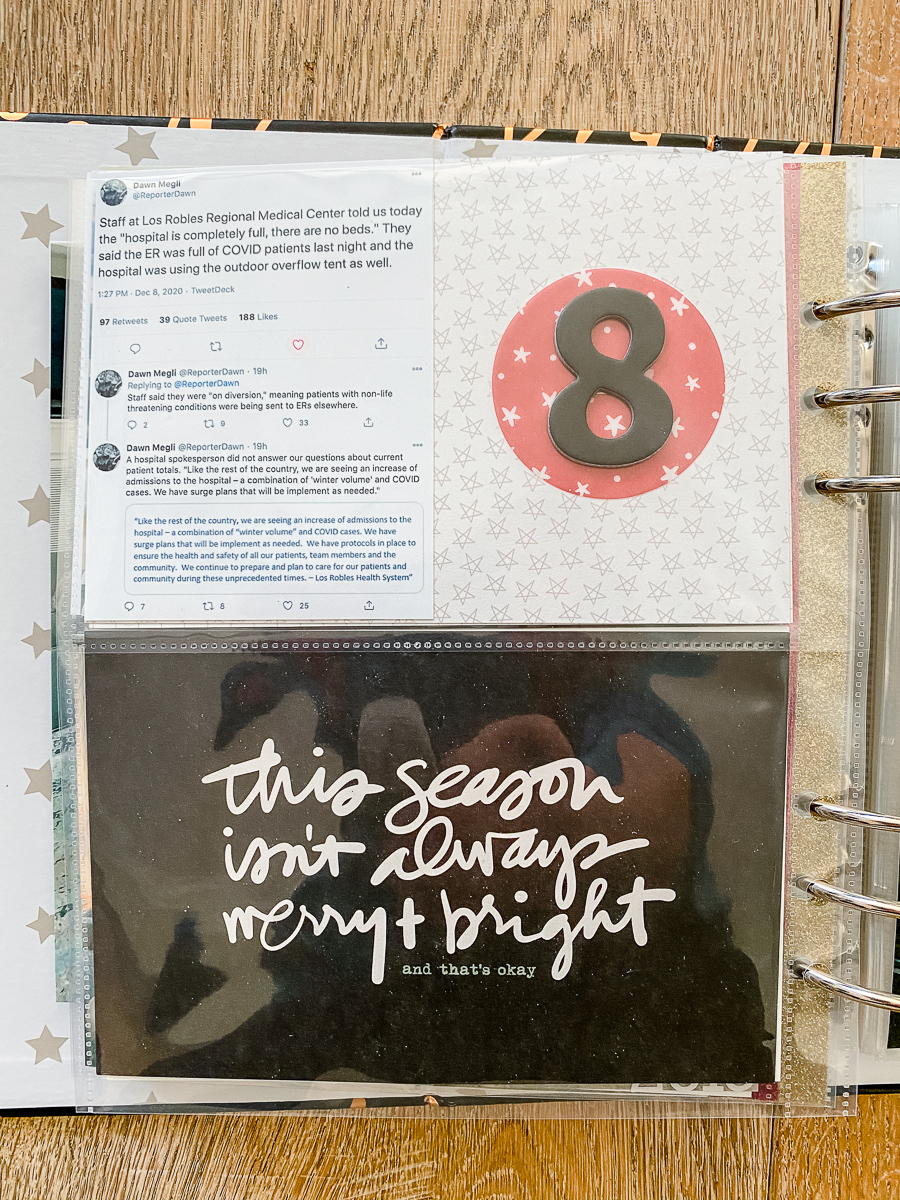 Dawn Megli
@ReporterDawn
Staff at Los Robles Regional Medical Center told us today
the "hospital is completely full, there are no beds." They
said the ER was full of COVID patients last night and the
hospital was using the outdoor overflow tent as well.
1:27 PM · Dec 8, 2020 · TweetDeck
97 Retweets 39 Quote Tweets 188 Likes
Dawn Megli @ReporterDawn · 19h
Replying to @ReporterDawn
Staff said they were "on diversion," meaning patients with non-life
threatening conditions were being sent to ERs elsewhere.
2 9 33
Dawn Megli @ReporterDawn · 19h
A hospital spokesperson did not answer our questions about current
patient totals. "Like the rest of the country, we are seeing an increase of
admissions to the hospital – a combination of 'winter volume' and COVID
cases. We have surge plans that will be implement as needed."
"Like the rest of the country, we are seeing an increase of admissions to the
hospital – a combination of "winter volume" and COVID cases. We have
surge plans that will be implement as needed. We have protocols in place to
ensure the health and safety of all our patients, team members and the
community. We continue to prepare and plan to care for our patients and
community during these unprecedented times. – Los Robles Health System"
7 8 25
8
this season
isn't always
merry + bright
and that's okay